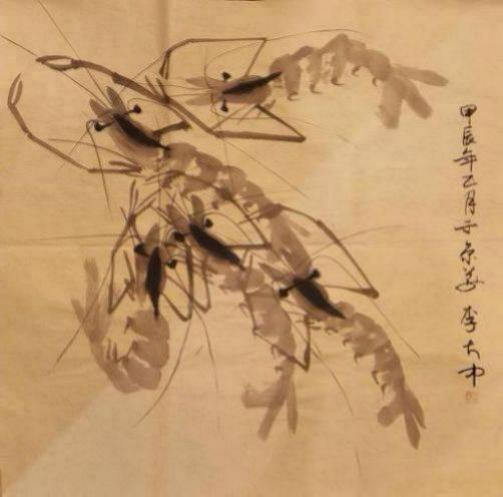 甲辰年正月于京華 李大中